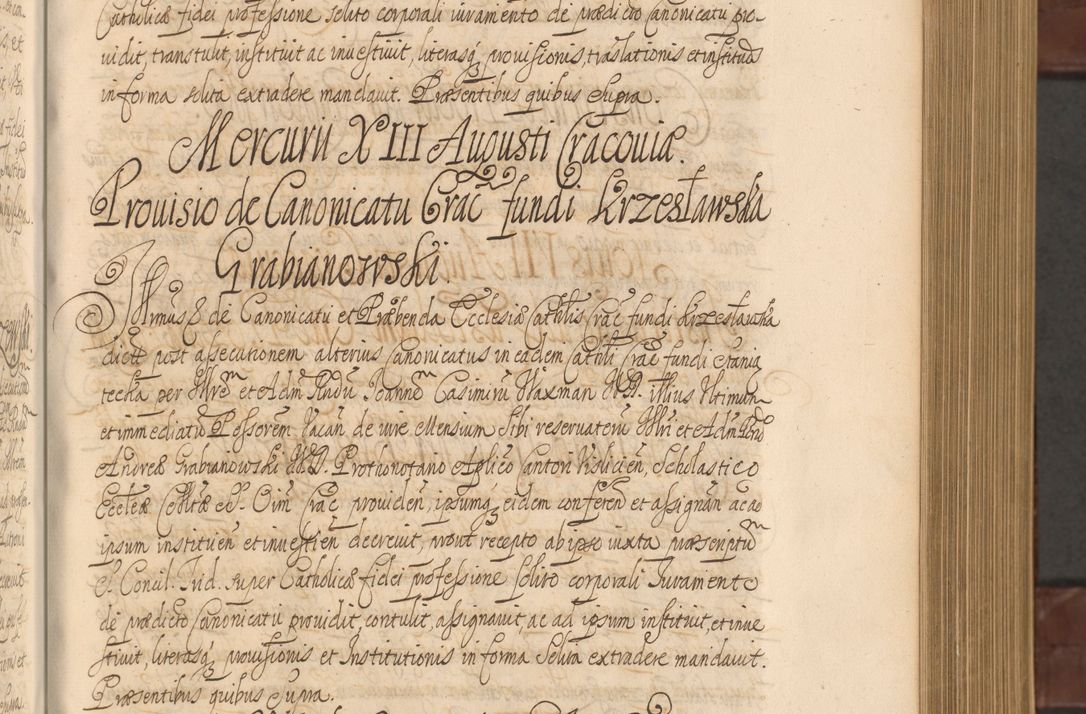 Catholicæ fidei professione solito corporali iuramento de prædicto Canonicatu pro-
uidit, transtulit, instituit ac inuestiuit, literasq provisionis, traslationis et institu
in forma solita extradere mandauit. Præsentibus quibus supra.
Mercurii XIII Augusti Cracouiæ.
Prouisio de Canonicatu Crac fundi Krzesławska
Grabianowski.
Illmus & de Canonicatu et Præbenda Ecclesiæ Cathlis Crac fundi Krzesławska
dict post assecutionem alterius Canonicatus in eadem Cathli Crac fundi
tecka per Mrem et Adm Rndu Joannem Casimiru Waxman illius Vltimum
et immediatu Possorem Vacan de iure Mensium Sibi reseruatoru Mri et Adm
Andreæ Grabianowski Prothonotario Aplico Cantori Vislicien, Scholastico
Eccleæ & Oim Crac prouiden, ipsumq eidem conferen et assignan ac ad
ipsum instituen et inuestien decreuit, prout recepto ab ipso iuxta præscriptum
S. Concil. Trid. super Catholicæ fidei professione solito corporali Juramento
de prædicto Canonicatu prouidit, contulit, assignauit, ac ad ipsum instituit, et inue
stiuit, literasq prouisionis et Institutionis in forma Solita extradere mandauit.
Præsentibus quibus Supra.